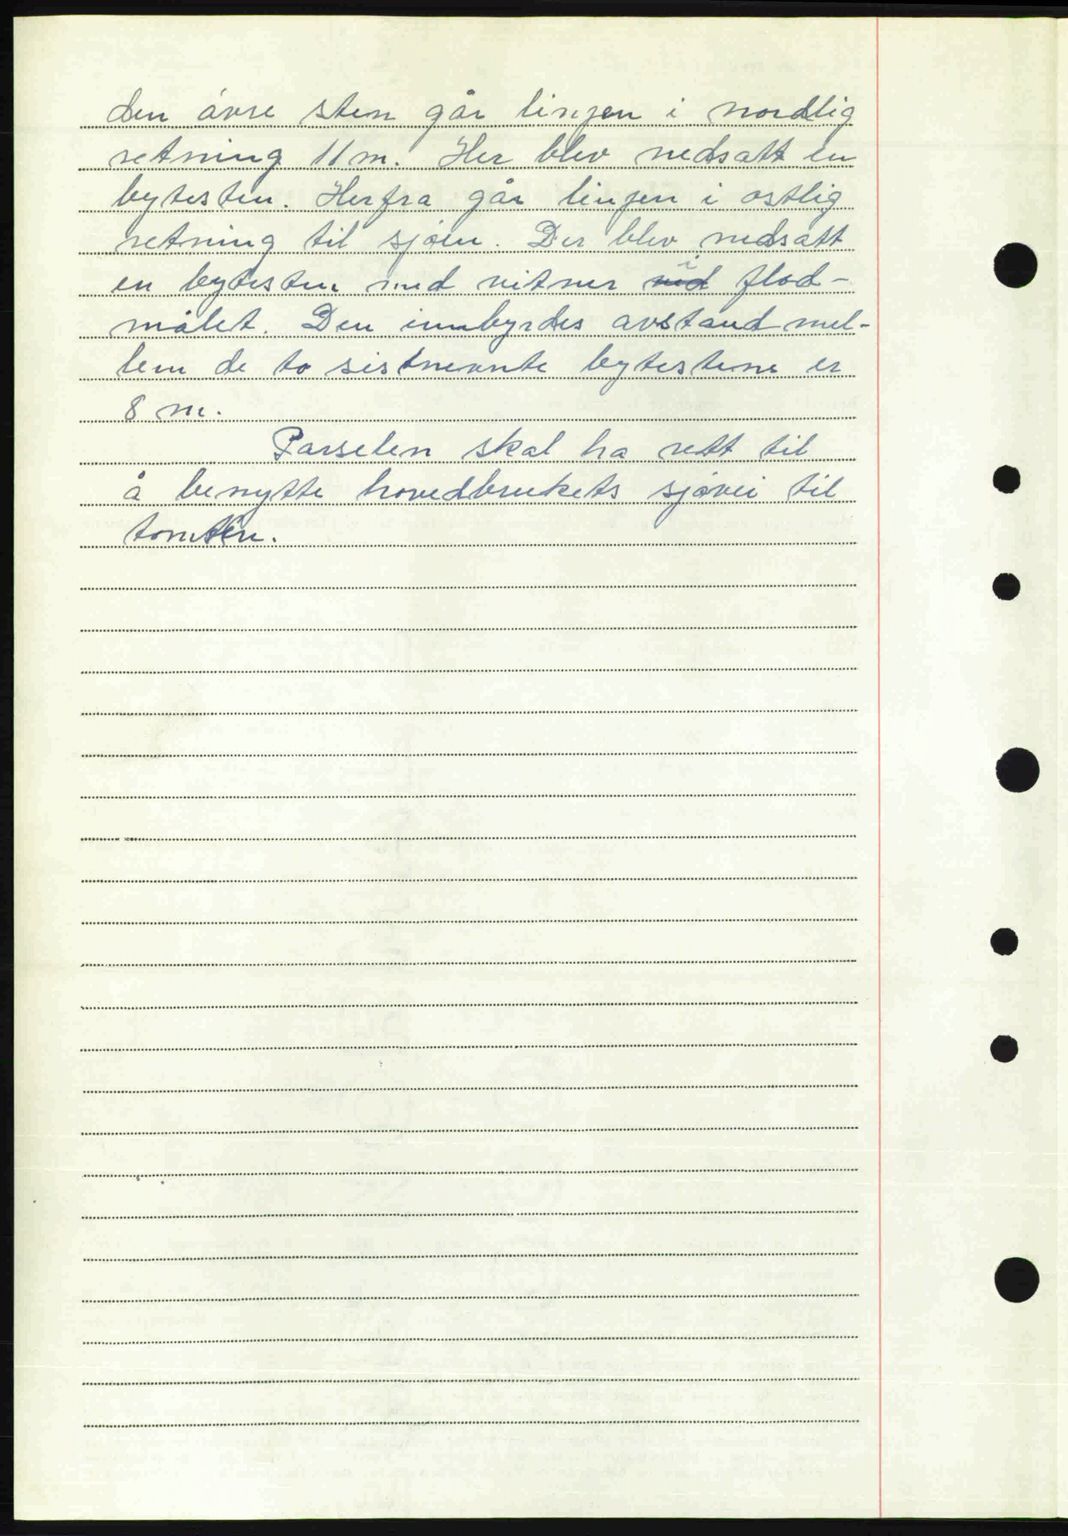 den øvre sten går linjen i nordlig
retning 11 m. Her blev nedsatt en
bytesten. Herfra går linjen i østlig
retning til sjøen. Der blev nedsatt
en bytesten med vitner i flod-
målet. Den innbyrdes avstand mel-
lem de to sistnevnte bytestene er
8 m.
Parselen skal ha rett til
å benytte hovedbrukets sjøvei til
tomten.